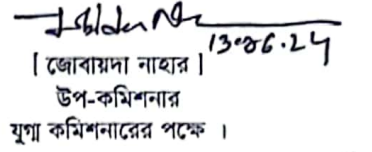 13.06.24
[ জোবায়দা নাহার ]
উপ-কমিশনার
যুগ্ম কমিশনারের পক্ষে ।